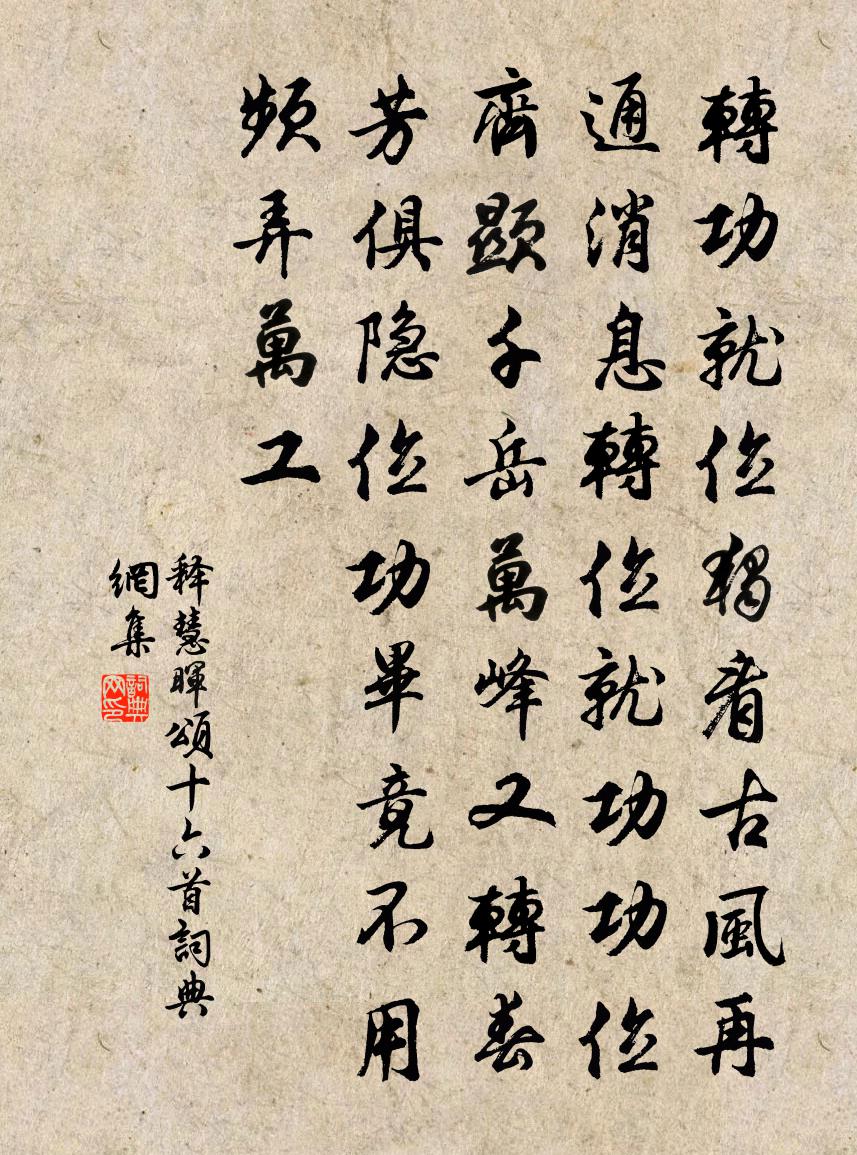 轉功就位獨看古風再
通消息轉位就功功位
齊顯千岳萬峰又轉春
芳俱隐位功畢竟不用
頻弄萬工
释慧暉頌十六首詞典
網集
詞典
网印